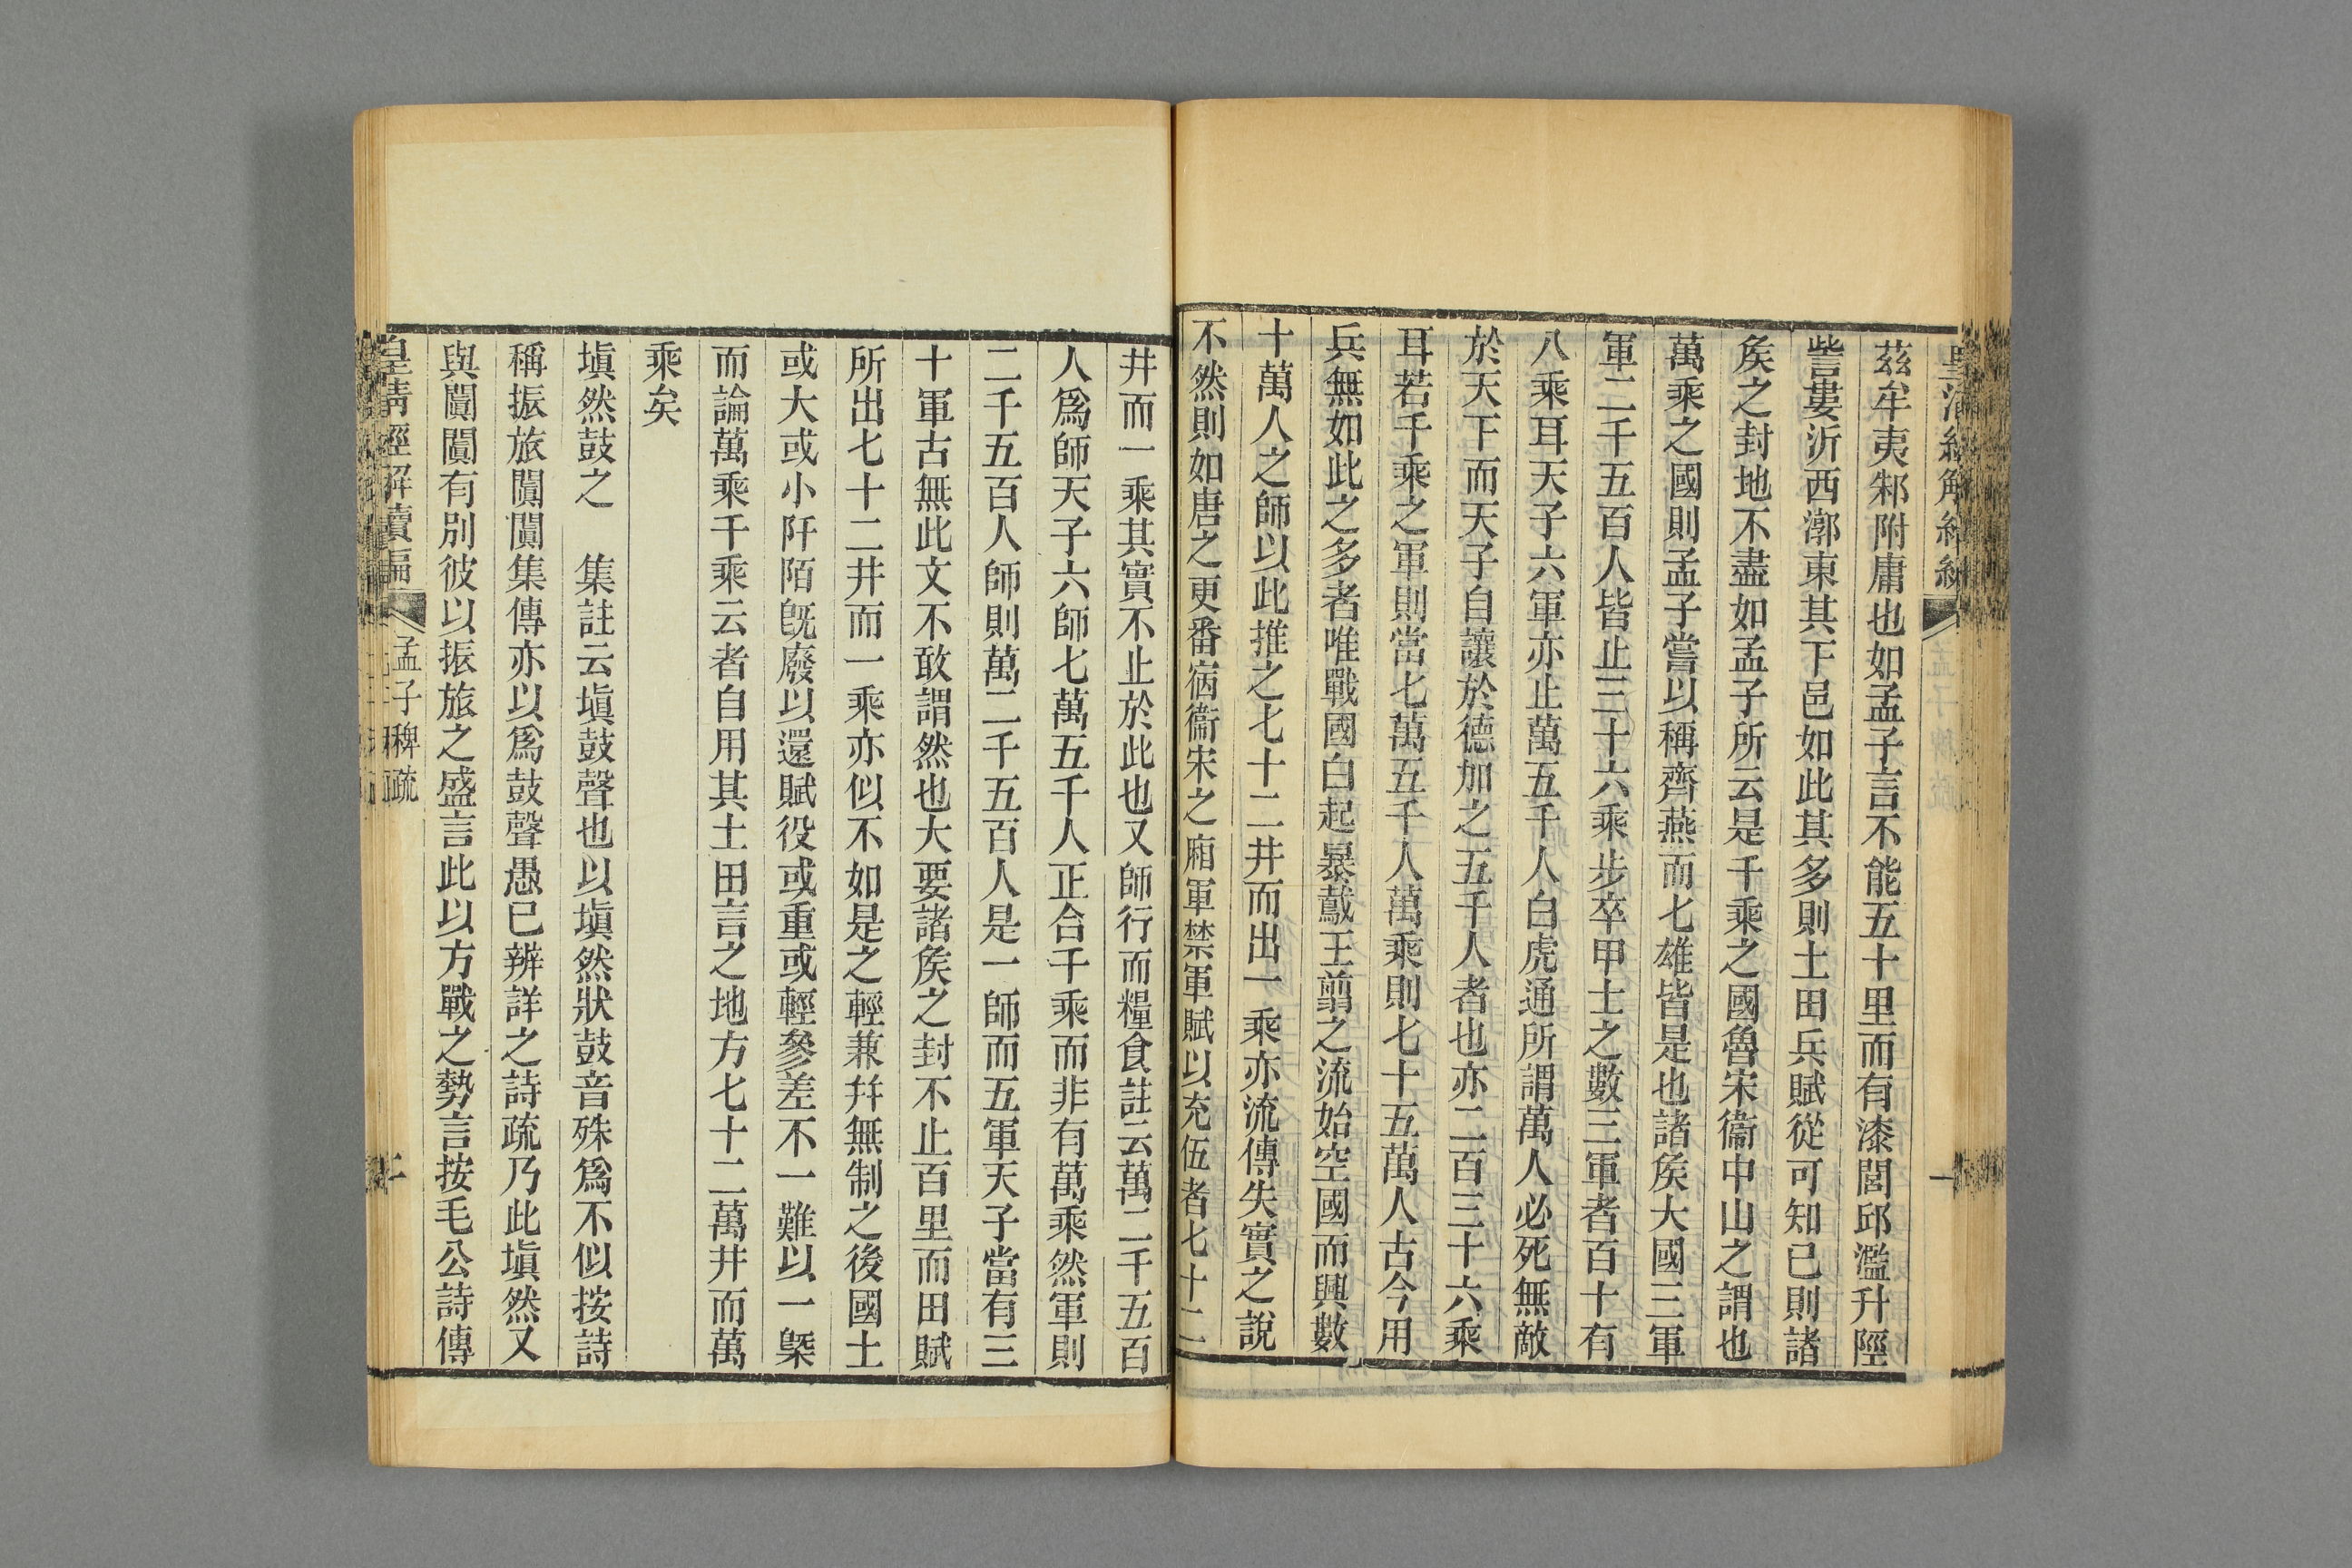 茲牟夷邾附庸也如孟子言不能五十里而有漆閭邱濫升陘
訾婁沂西漷東其下邑如此其多則土田兵賦從可知已則諸
矦之封地不盡如孟子所云是千乘之國魯宋衞中山之謂也
萬乘之國則孟子嘗以稱齊燕而七雄皆是也諸矦大國三軍
軍二千五百人皆止三十六乘步卒甲士之數三軍者百十有
八乘耳天子六軍亦止萬五千人白虎通所謂萬人必死無敵
於天下而天子自讓於德加之五千人者也亦二百三十六乘
耳若千乘之軍則當七萬五千人萬乘則七十五萬人古今用
兵無如此之多者唯戰國白起暴鳶王翦之流始空國而興數
十萬人之師以此推之七十二井而出一乘亦流傳失實之說
不然則如唐之更番宿衞宋之廂軍禁軍賦以充伍者七十二
井而一乘其實不止於此也又師行而糧食註云萬二千五百
人爲師天子六師七萬五千人正合千乘而非有萬乘然軍則
二千五百人師則萬二千五百人是一師而五軍天子當有三
十軍古無此文不敢謂然也大要諸矦之封不止百里而田賦
所出七十二井而一乘亦似不如是之輕兼幷無制之後國土
或大或小阡陌旣廢以還賦役或重或輕參差不一難以一槩
而論萬乘千乘云者自用其土田言之地方七十二萬井而萬
乘矣
塡然鼓之　集註云塡鼓聲也以塡然狀鼓音殊爲不似按詩
稱振旅闐闐集傳亦以爲鼓聲愚已辨詳之詩疏乃此塡然又
與闐闐有別彼以振旅之盛言此以方戰之勢言按毛公詩傳
皇淸經解續編
孟子稗疏
二